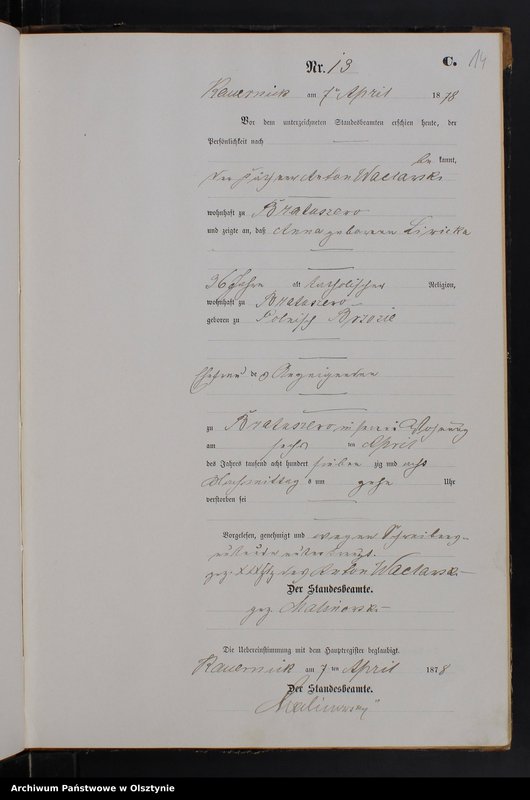 Nr. 13
C.
14
Kauernick am 7ten April 1878
Vor dem unterzeichneten Standesbeamten erschien heute, der
Persönlichkeit nach
be kannt,
der Anton Waclawski
wohnhaft zu Brattuszewo
und zeigte an, daß Anna geborenen Liricka
36 Jahre alt katholischer Religion,
wohnhaft zu Brattuszewo
geboren zu Polnisch Brzozie
Ehefrau des Anzeigenden
zu Brattuszewo in seiner Wohnung
am sechs ten April
des Jahres tausend acht hundert sieben zig und acht
Nachmittag s um zehn Uhr
verstorben sei
Vorgelesen, genehmigt und wegen Schreibens-
unkunde unterkreuzt.
gez. XXX Anton Waclawski
Der Standesbeamte.
gez. Malinowski
Die Uebereinstimmung mit dem Hauptregister beglaubigt.
Kauernick am 7 ten April 1878
Der Standesbeamte.
Malinowsky
Archiwum Państwowe w Olsztynie